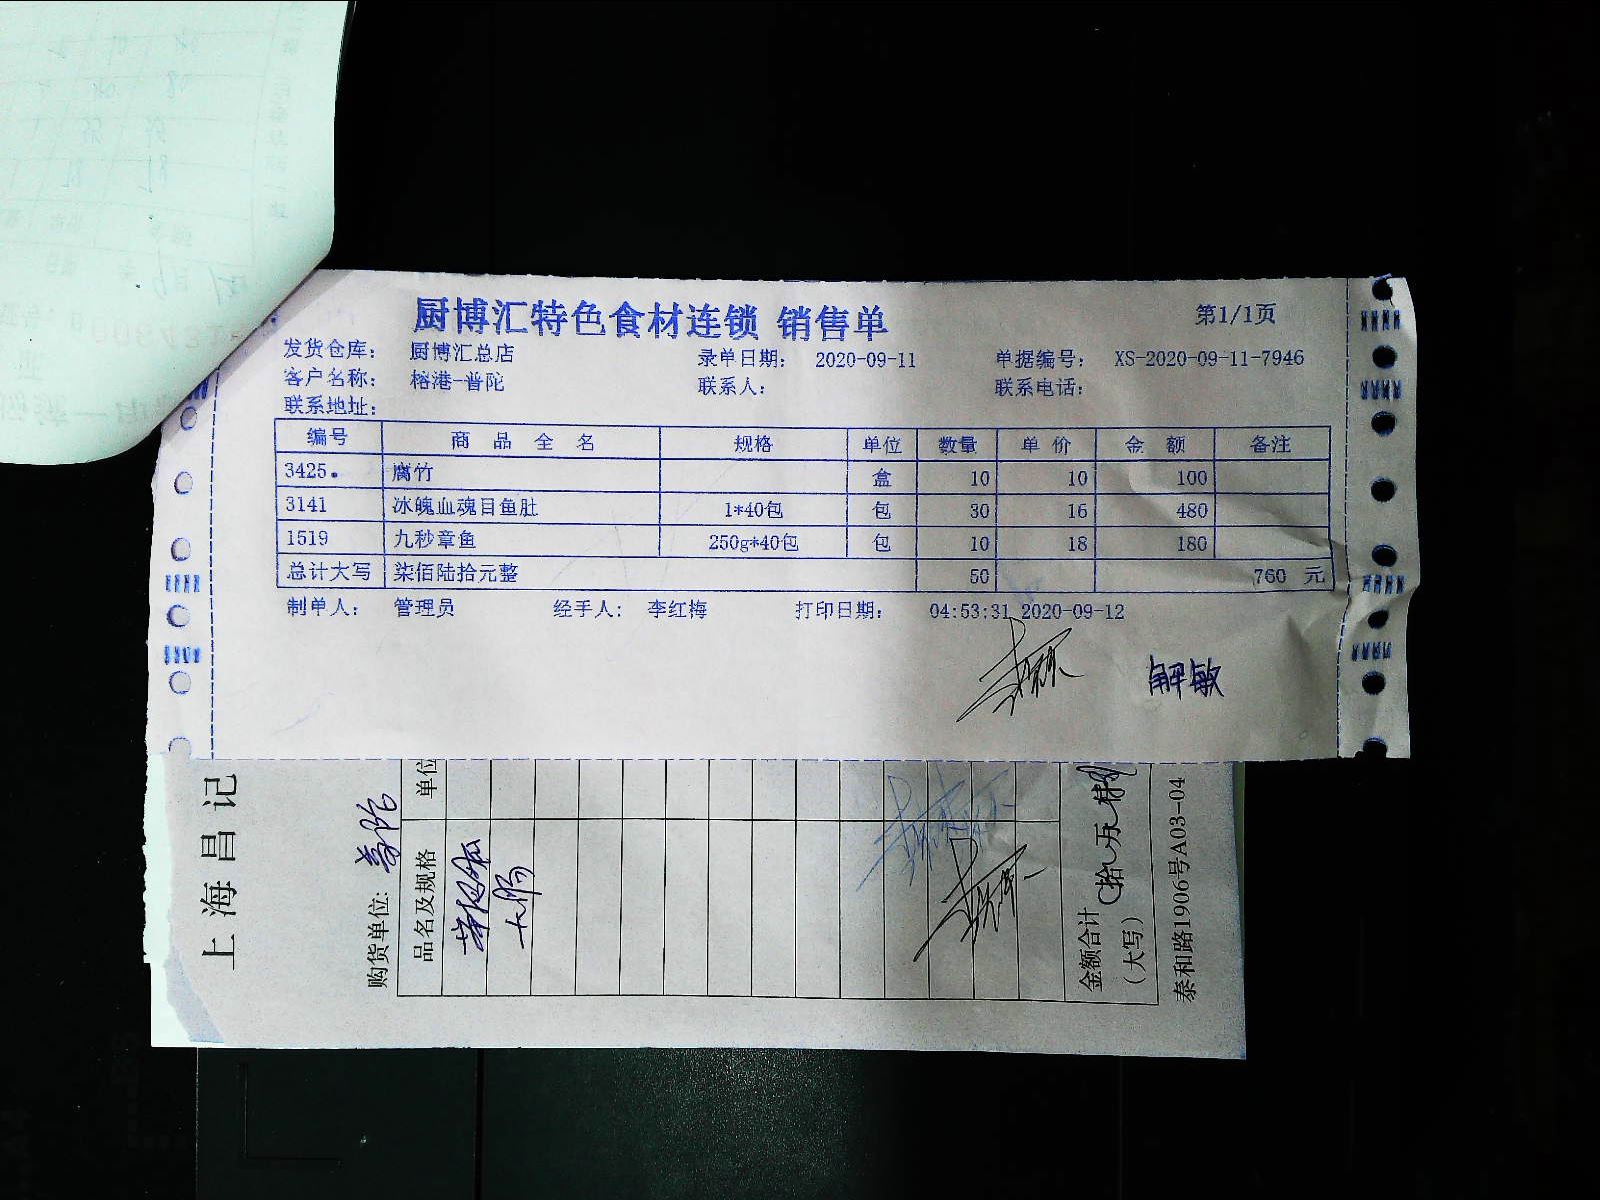 厨博汇特色食材连锁 销售单
第1/1页
发货仓库： 厨博汇总店 录单日期： 2020-09-11 单据编号： XS-2020-09-11-7946
客户名称： 榕港-普陀 联系人： 联系电话：
联系地址：
编号 商品全名 规格 单位 数量 单价 金额 备注
3425. 腐竹 盒 10 10 100
3141 冰魄血魂目鱼肚 1*40包 包 30 16 480
1519 九秒章鱼 250g*40包 包 10 18 180
总计大写 柒佰陆拾元整 50 760 元
制单人： 管理员 经手人： 李红梅 打印日期： 04:53:31 2020-09-12
解敏
上海昌记
购货单位: 普陀
品名及规格 单位
大肠
金额合计
（大写）
泰和路1906号A03-04